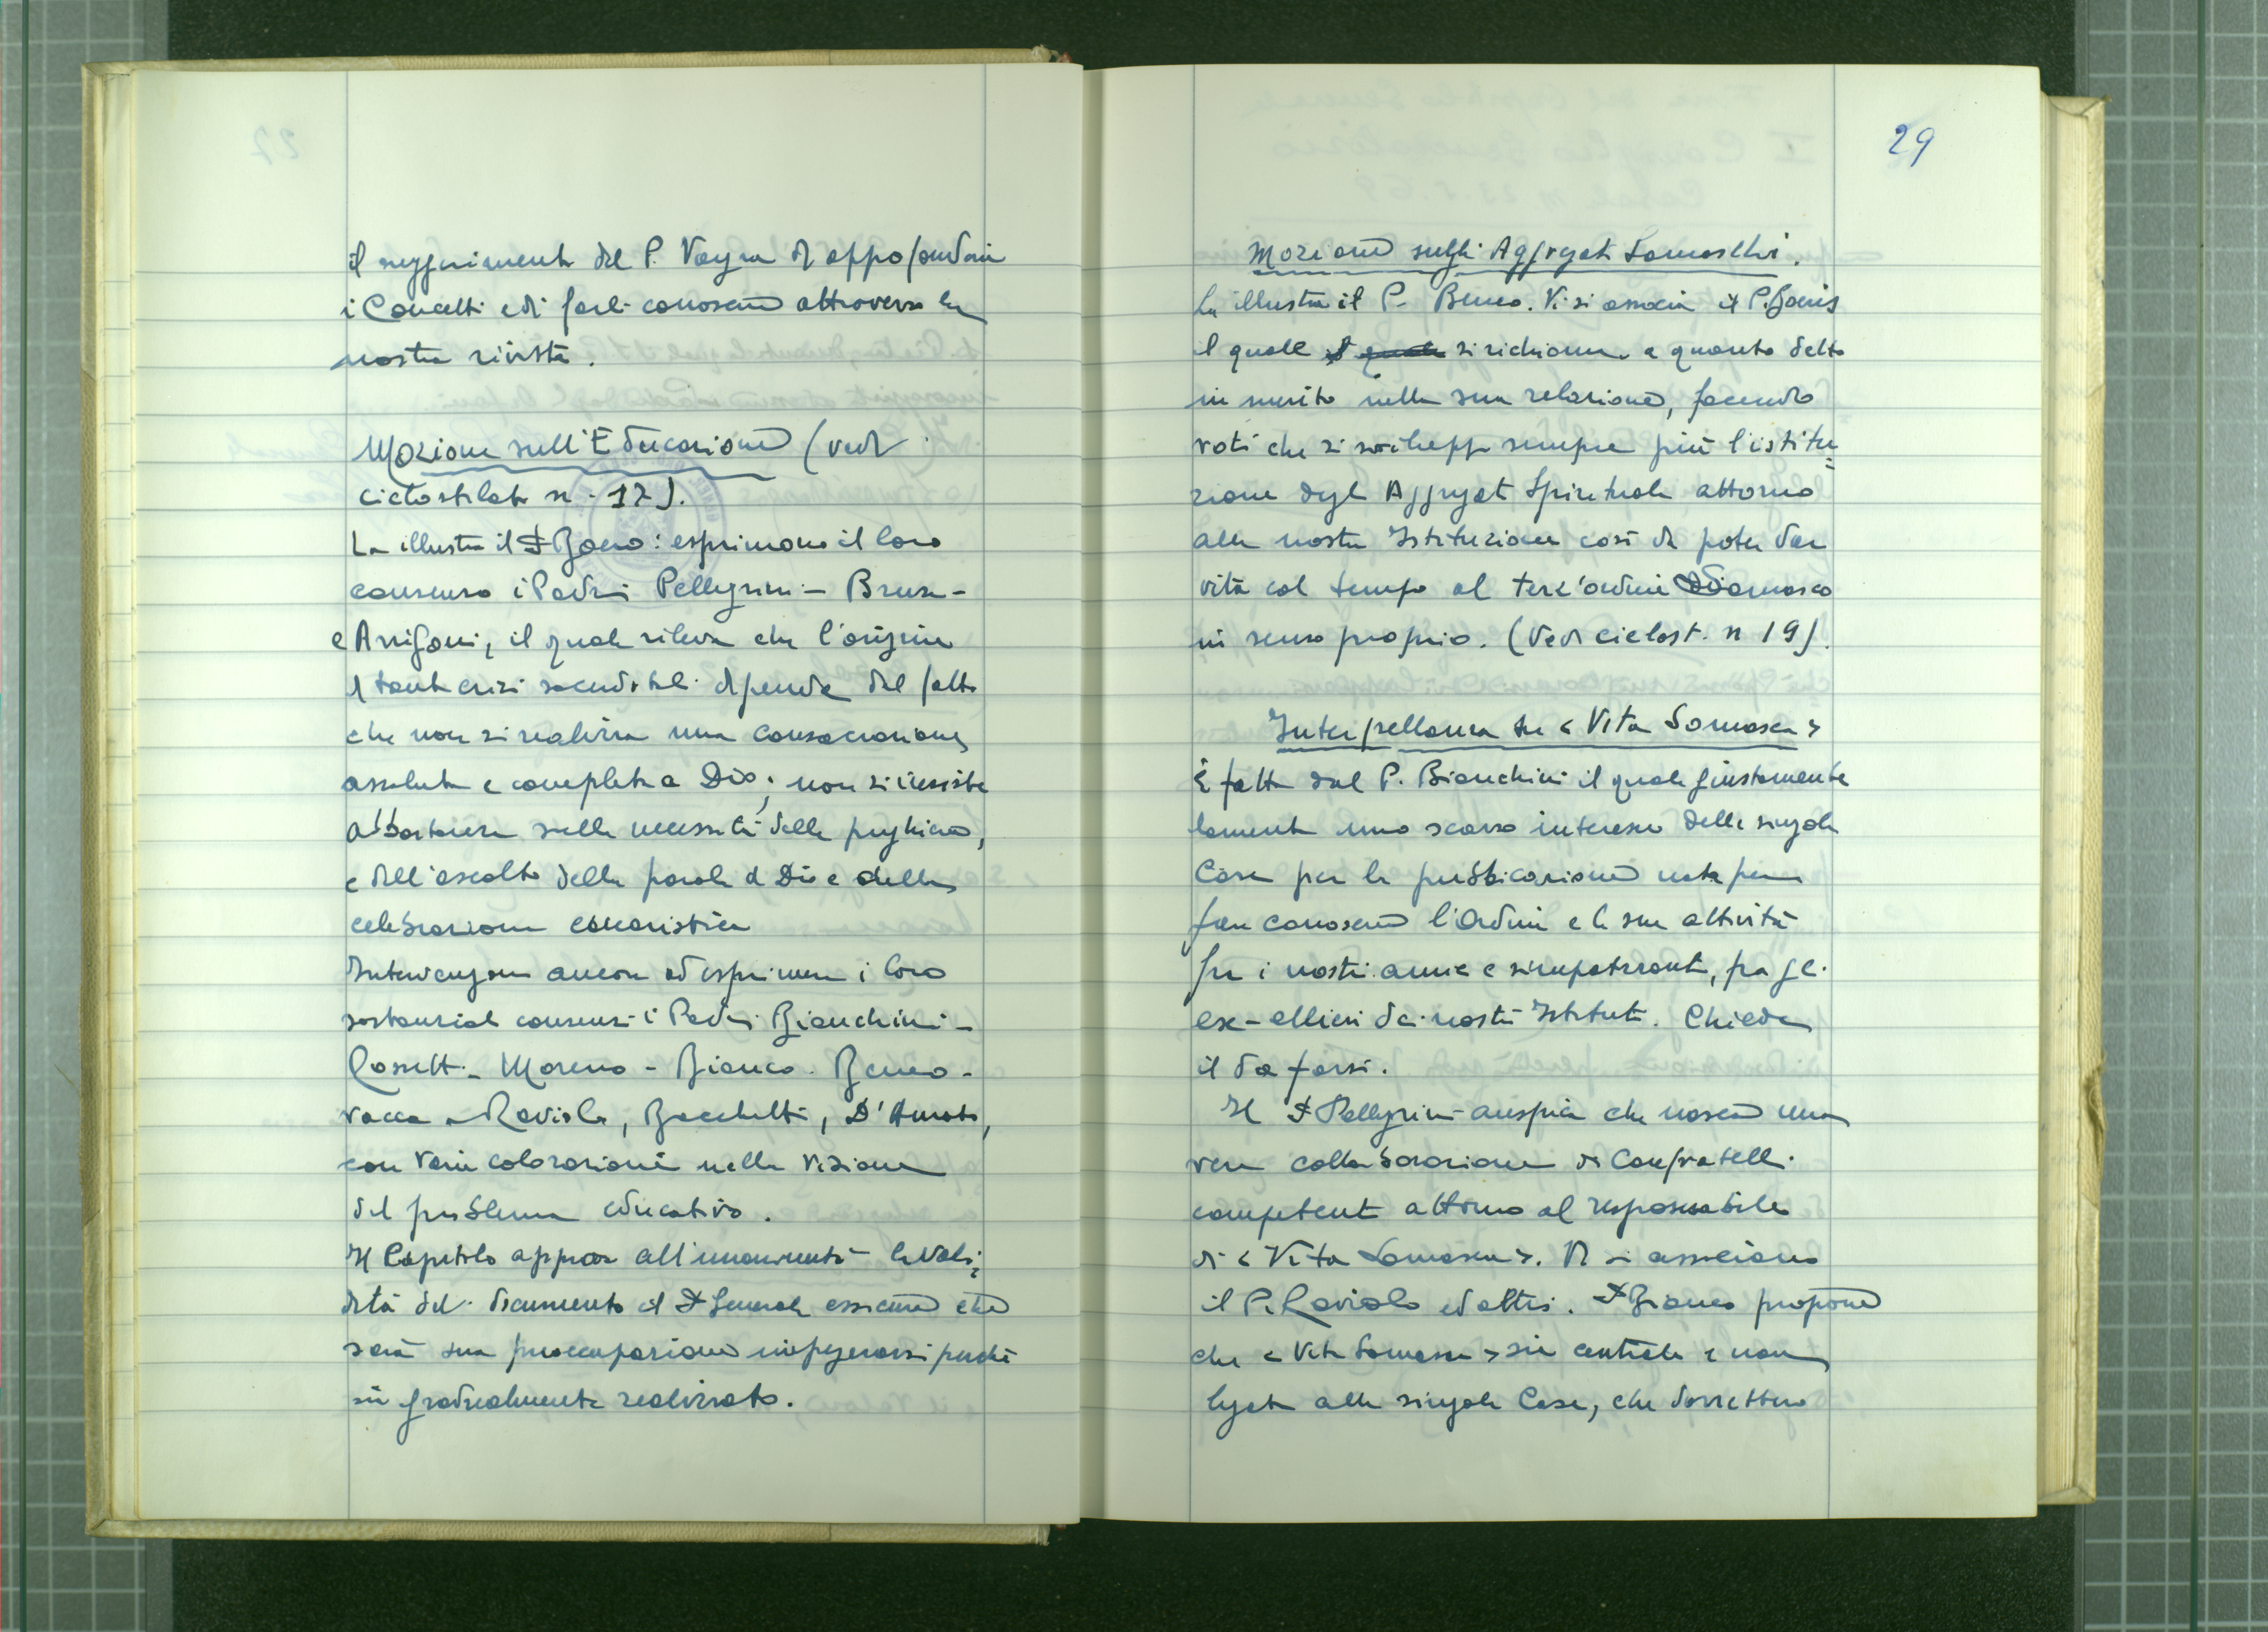 il suggerimento del P. Vayra di approfondire
i Concetti e di farli conoscere attraverso la
nostra rivista.
Mozione sull'Educazione (vedi
ciclostilato n. 17).
La illustra il P. Boero: esprimono il loro
consenso i Padri Pellegrini - Brusa -
e Arrigoni, il quale rileva che l'origine
di tante crisi sacerdotali dipende dal fatto
che non si realizza una consacrazione
assoluta e completa a Dio; non si insiste
abbastanza sulla necessità della preghiera,
e dell'ascolto della parola di Dio e della
celebrazione eucaristica
Intervengono ancora ad esprimere i loro
sostanziali consensi i Padri Bianchini -
Rossetti - Moreno - Bianco - Beneo -
vacca - Raviolo, Bacchetti, D'Amato,
con varie colorazioni nella visione
del problema educativo.
Il Capitolo approva all'unanimità la vali=
dità del documento il P. Generale assicura che
sarà sua preoccupazione impegnarsi perché
sia gradualmente realizzato.
29
Mozione sugli Aggregati Somaschi.
La illustra il P. Beneo. Vi si associa il P.
il quale il quale si richiama a quanto detto
in merito nella sua relazione, facendo
voti che si sviluppi sempre più l'istitu=
zione degli Aggregati Spirituali attorno
alla nostra Istituzione così da poter dar
vita col tempo al terz'ordine Somasco
in senso proprio. (Vedi ciclost. n 19).
Interpellanza su « Vita Somasca »
È fatta dal P. Bianchini il quale giustamente
lamenta uno scarso interesse delle singole
Case per la pubblicazione nata per
far conoscere l'Ordine e la sua attività
fra i nostri amici e simpatizzanti, fra gli
ex-allievi dei nostri Istituti. Chiede
il da farsi.
Il P. Pellegrini auspica che nasca una
vera collaborazione di Confratelli
competenti attorno al responsabile
di « Vita Somasca ». Vi si associano
il P. Raviolo ed altri. P. Bianco propone
che « Vita Somasca » sia centrale e non
legata alle singole Case, che dovrebbero